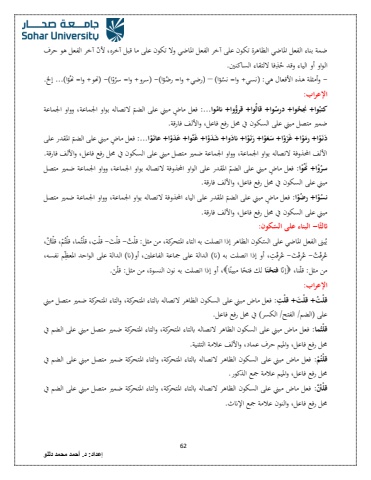 جامعة صحار
Sohar University
ضمة بناء الفعل الماضي الظاهرة تكون على آخر الفعل الماضي ولا تكون على ما قبل آخره، لأنّ آخر الفعل هو حرف
الواو أو الياء وقد حُذِفا لالتقاء الساكنين.
- وأمثلة هذه الأفعال هي: (نسي+ وا= نسُوْا) – (رضي+ وا= رضُوْا)– (سرو+ وا= سرُوْا)– (نحو+ وا= نحُوْا)... إلخ.
الإعراب:
كتبُوا+ نجحُوا+ درسُوا+ قالُوا+ قرؤُوا+ نامُوا...: فعل ماضٍ مبني على الضمّ لاتصاله بواو الجماعة، وواو الجماعة
ضمير متصل مبني على السكون في محل رفع فاعل، والألف فارقة.
دَنَوْا+ رمَوْا+ غَزَوْا+ سعَوْا+ رَنَوْا+ نادَوا+ شَدَوْا+ عَنَوا+ عَدَوْا+ عانَوا...: فعل ماضٍ مبني على الضمّ المقدر على
الألف المحذوفة لاتصاله بواو الجماعة، وواو الجماعة ضمير متصل مبني على السكون في محل رفع فاعل، والألف فارقة.
سرُوْا+ نحُوْا: فعل ماضٍ مبني على الضمّ المقدر على الواو المحذوفة لاتصاله بواو الجماعة، وواو الجماعة ضمير متصل
مبني على السكون في محل رفع فاعل، والألف فارقة.
نسُوْا+ رضُوْا: فعل ماضٍ مبني على الضمّ المقدر على الياء المحذوفة لاتصاله بواو الجماعة، وواو الجماعة ضمير متصل
مبني على السكون في محل رفع فاعل، والألف فارقة.
ثالثًا– البناء على السكون:
يُبنى الفعل الماضي على السّكون الظاهر إذا اتصلت به التاء المتحركة، من مثل: قلْتُ– قلْتَ– قلْتِ، قلْتُما، قلْتُمْ، قلْتُنَّ.
عرفْتُ– عرفْتَ– عرفْتِ، أو إذا اتصلت به (نا) الدالة على جماعة الفاعلين، أو(نا) الدالة على الواحد المعظِّم نفسه،
من مثل: قلْنا، ﴿إنّا فتحْنا لك فتحًا مبينًا﴾، أو إذا اتصلت به نون النسوة، من مثل: قلْنَ.
الإعراب:
قلْتُ+ قلْتَ+ قلْتِ: فعل ماض مبني على السكون الظاهر لاتصاله بالتاء المتحركة، والتاء المتحركة ضمير متصل مبني
على (الضم/ الفتح/ الكسر) في محل رفع فاعل.
قلْتُما: فعل ماض مبني على السكون الظاهر لاتصاله بالتاء المتحركة، والتاء المتحركة ضمير متصل مبني على الضم في
محل رفع فاعل، والميم حرف عماد، والألف علامة التثنية.
قلْتُمْ: فعل ماض مبني على السكون الظاهر لاتصاله بالتاء المتحركة، والتاء المتحركة ضمير متصل مبني على الضم في
محل رفع فاعل، والميم علامة جمع الذكور.
قلْتُنَّ: فعل ماض مبني على السكون الظاهر لاتصاله بالتاء المتحركة، والتاء المتحركة ضمير متصل مبني على الضم في
محل رفع فاعل، والنون علامة جمع الإناث.
62
إعداد: د. أحمد محمد دللو